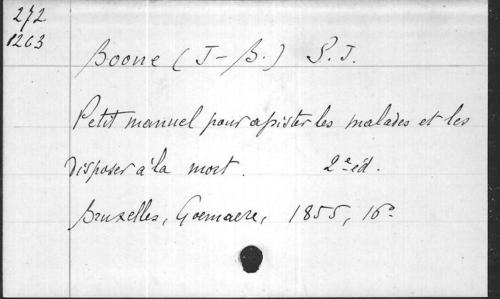 272
1263
Boone (J-B.) S.J.
Petit manuel pour assister les malades et les
disposer à la mort. 2e éd.
Bruxelles, Goemaere, 1855, 16o